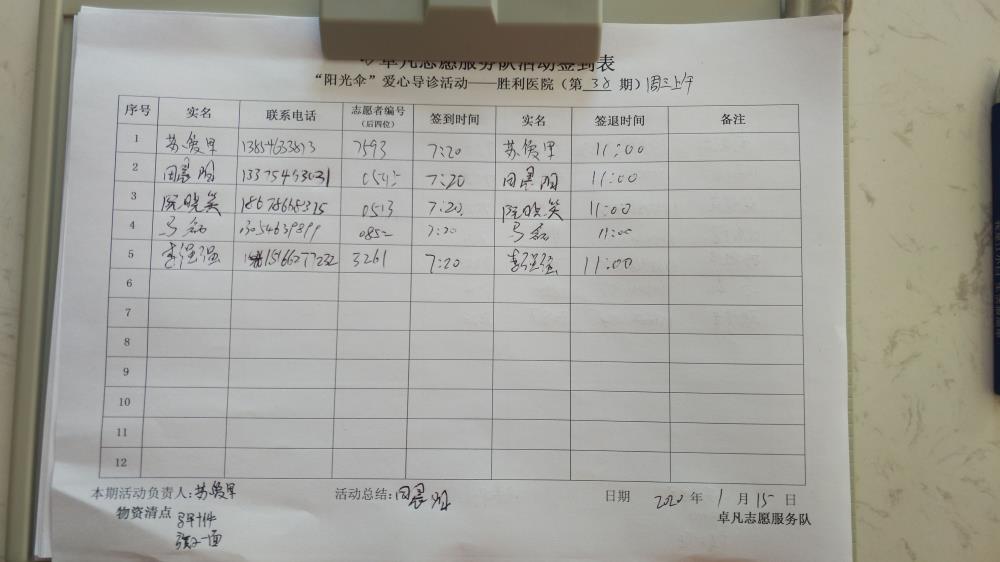 卓凡志愿服务队活动签到表
“阳光伞”爱心导诊活动——胜利医院（第 38 期）周三上午
序号 实名 联系电话 志愿者编号（后四位） 签到时间 实名 签退时间 备注
1 苏俊里 13854633813 7593 7:20 苏俊里 11:00
2 田晨阳 13375493031 0545 7:20 田晨阳 11:00
3 阮晓笑 18678668315 0513 7:20 阮晓笑 11:00
4 马磊 13054639899 0852 7:20 马磊 11:00
5 李强强 15166277232 3261 7:20 李强强 11:00
6
7
8
9
10
11
12
本期活动负责人：苏俊里 活动总结：田晨阳 日期 2020 年 1 月 15 日
物资清点 卓凡志愿服务队